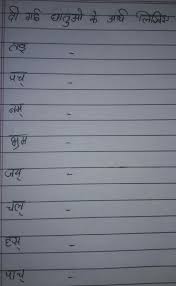 दी गई धातुओ के अर्थ लिखिए
तड् -
पच् -
नम् -
भ्रम -
जय् -
चल् -
हस् -
पाच् -